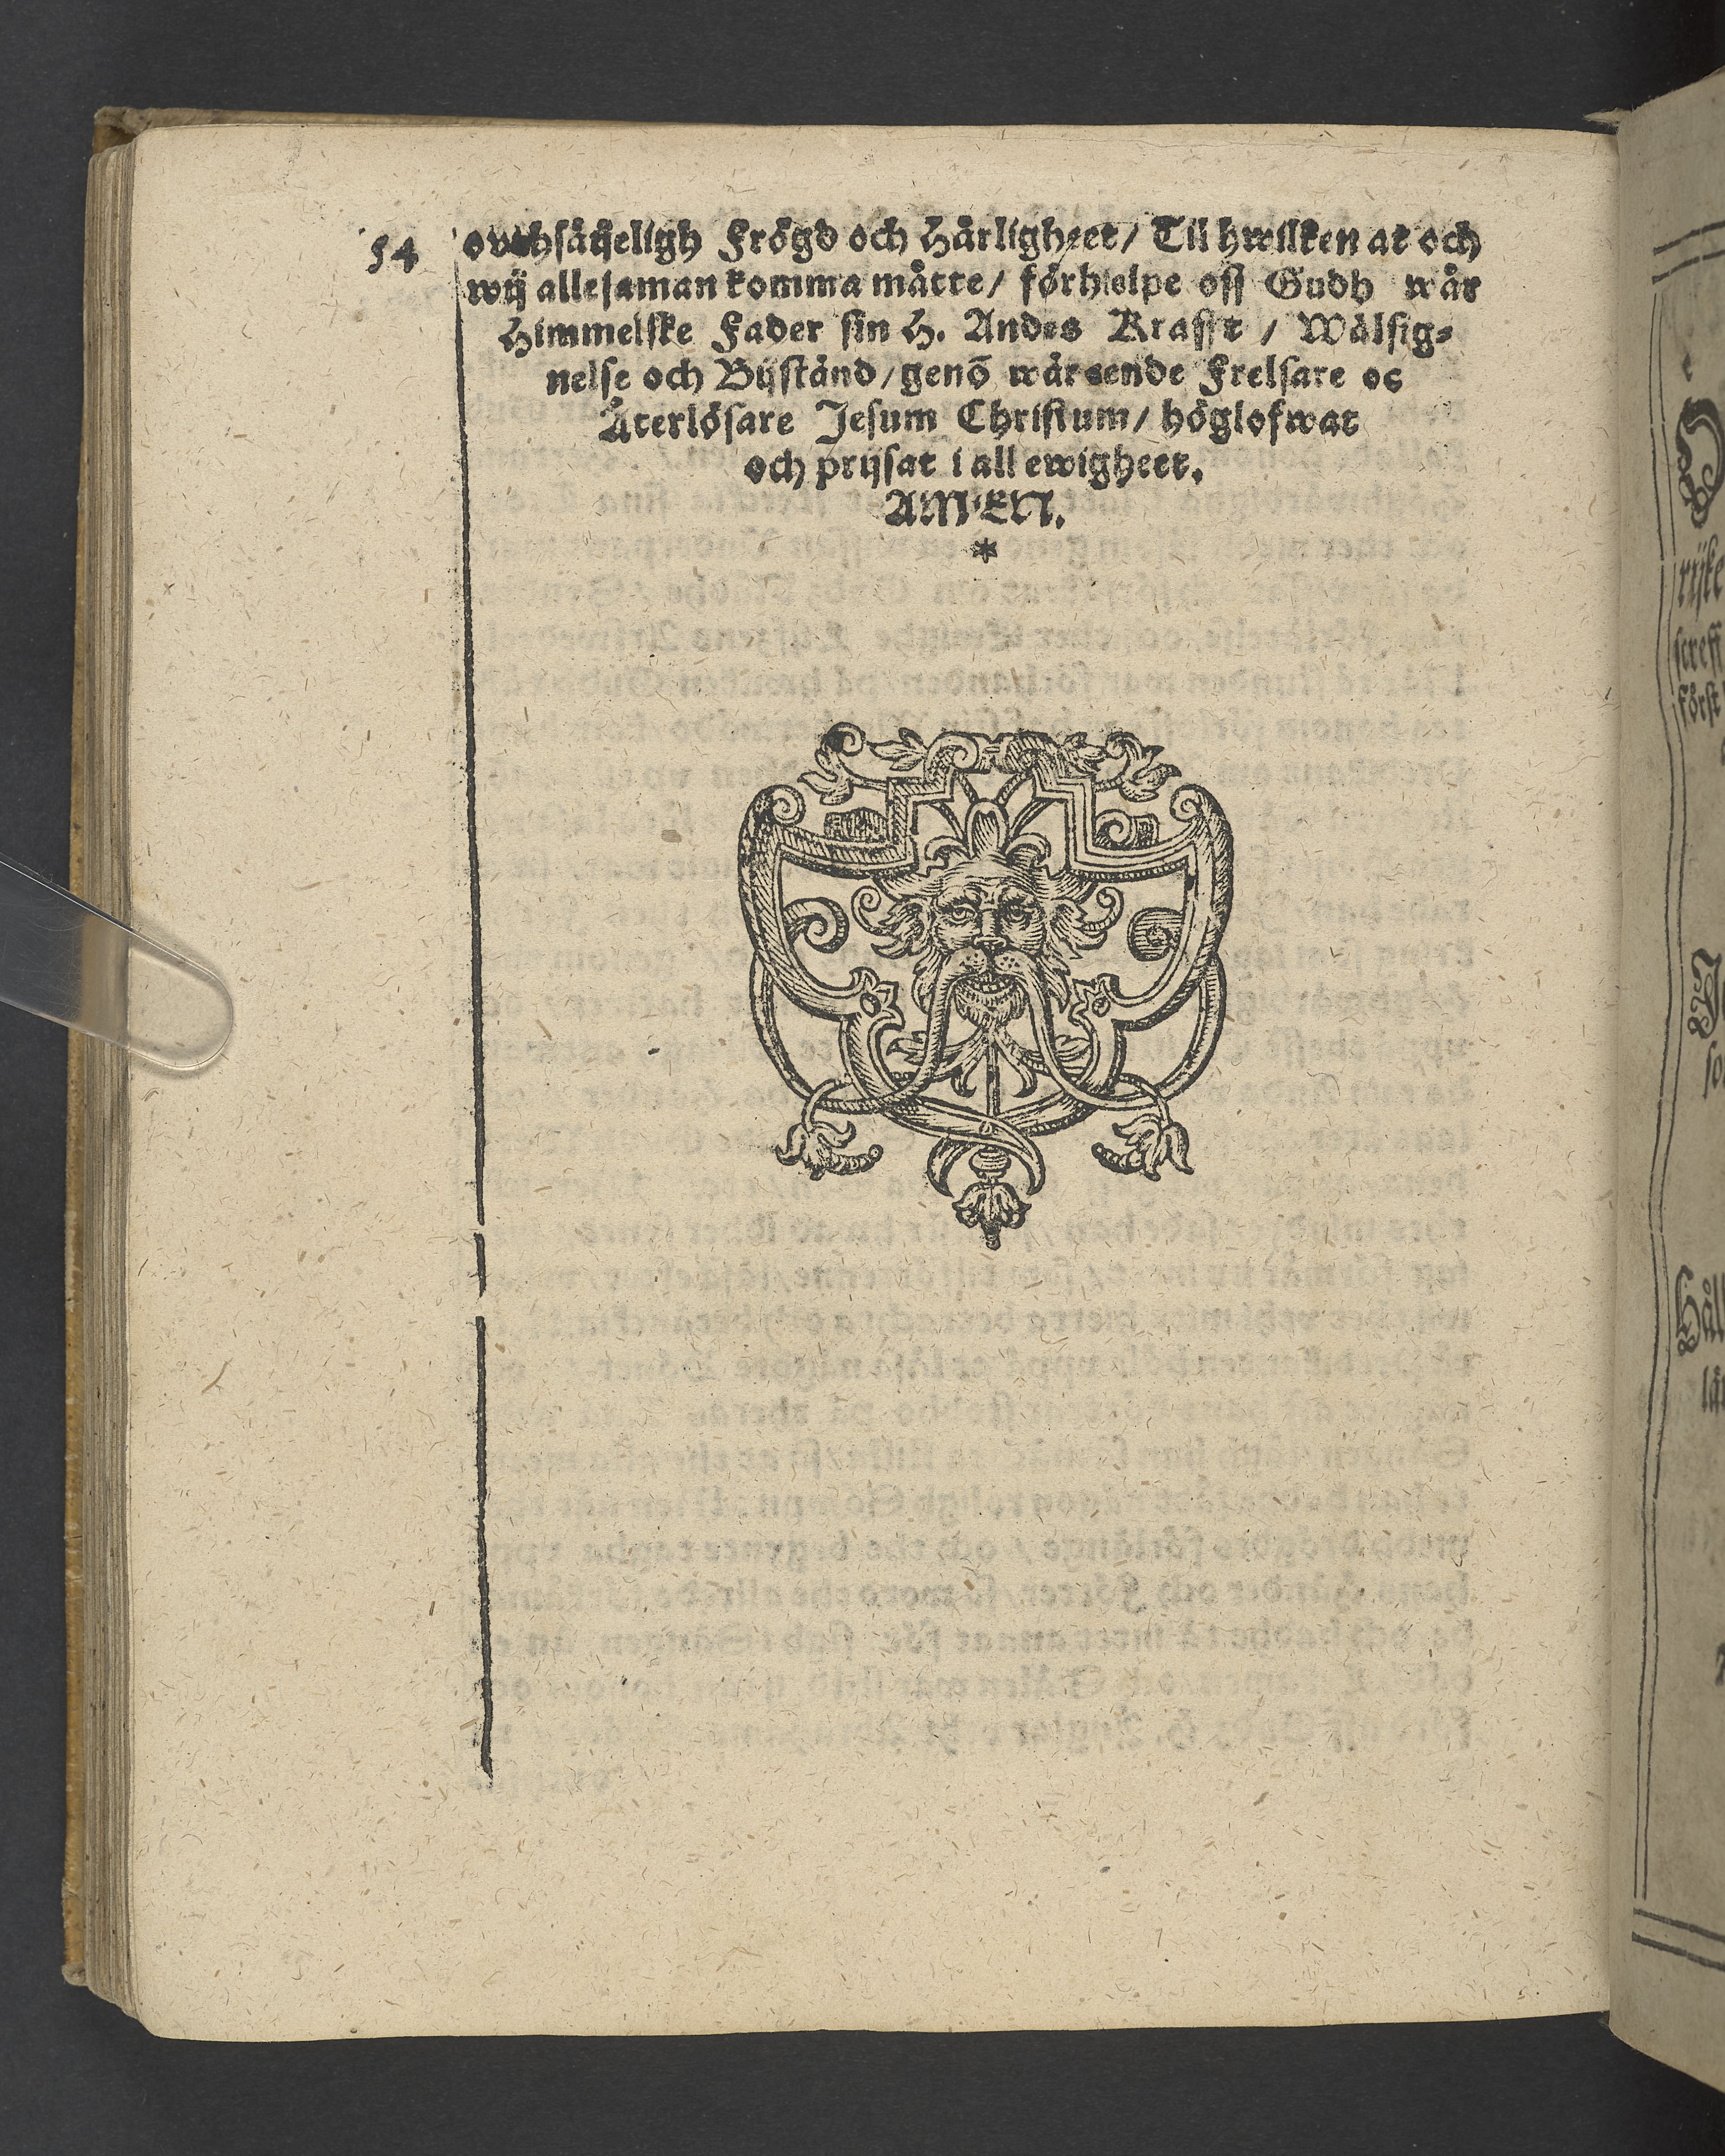 54
ovthsäijeligh Frögd och Härligheet / Til hwilken at och
wij allesaman komma måtte / förhielpe oss Gudh wår
Himmelske Fader sin H. Andes Krafft / Wälsig⸗
nelse och Bijstånd / genõ wår eende Frelsare oc
Återlösare Jesum Christum / höglofwat
och prijsat i all ewigheet.
AMEN.
*
rijke
screff
Först
Håll